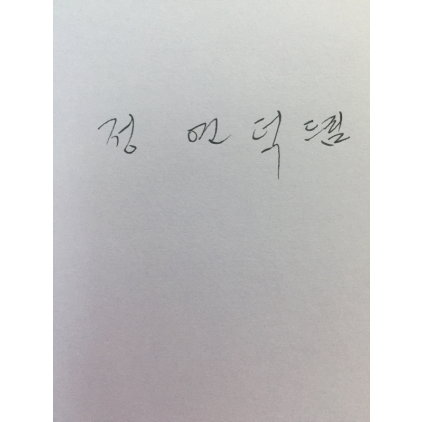 정 연 덕 드림